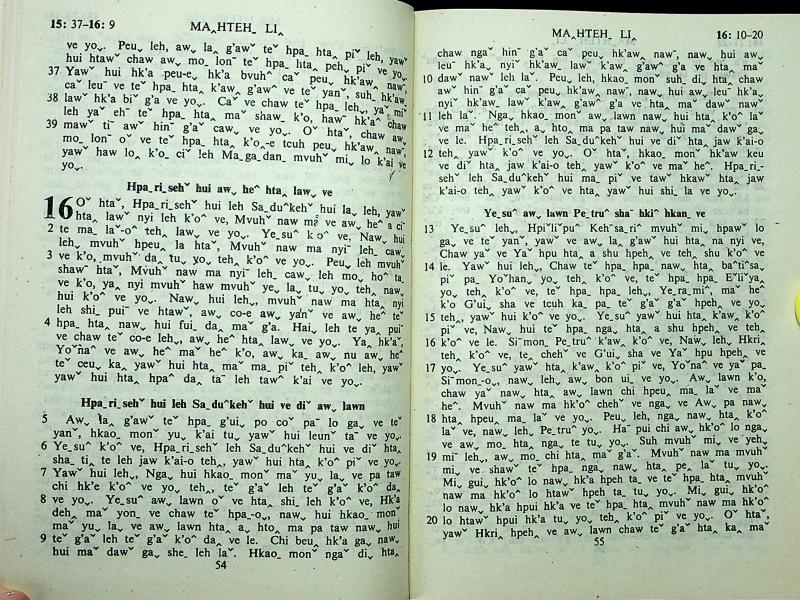 15: 37–16: 9
MA‸HTEH_ LI‸
ve yo˯. Peu˯ leh, aw˯ la‸ g'awˇ teˇ hpa_ hta‸ piˇ leh, yawˇ
hui htawˇ chaw aw˯ mo_ lonˉ teˇ hpa_ hta‸ peh˯ piˇ ve yo˯.
37 Yawˇ hui hk'a peu-e‸ hk'a bvuhˆ caˇ peu˯ hk'aw‸ nawˇ,
ca˯ leuˇ ve teˇ hpa_ hta‸ k'aw‸ g'awˆ ve teˇ yanˇ, suh_ hk'aw‸
38 lawˇ hk'a biˇ g'a ve yo˯. Caˇ ve chaw teˇ hpa_ leh˯, ya‸ miˇ
leh ya‸ ehˇ teˇ hpa_ hta‸ maˇ shaw_ k'o, hawˇ hk'aˆ chaw
39 mawˇ tiˉ aw˯ hinˉ g'a˯ caw˯ ve yo˯. Oˇ htaˇ, chaw aw˯
mo_ lonˉ oˇ ve teˇ hpa_ hta‸ k'o‸-e tcuh peu˯ hk'aw‸ nawˇ,
yawˇ haw lo‸ k'o_ ciˇ leh Ma_ga_dan_ mvuhˇ mi˯ lo k'ai ve
yo˯.
Hpa_ri_sehˇ hui aw˯ heˆ hta‸ law˯ ve
16 Oˇ htaˇ, Hpa_ri_sehˇ hui leh Sa_duˆkehˇ hui la˯ leh, yawˇ
hta‸ lawˇ nyi leh k'oˆ ve, Mvuhˇ naw ma ve aw˯ heˆ a ciˇ
2 te ma_ laˇ-o˯ teh‸ law˯ ve yo˯. Ye_suˇ k'oˆ ve, Naw˯ hui
leh˯ mvuhˇ hpeu˯ la htaˇ, Mvuhˇ naw ma nyiˇ leh_ caw˯
3 ve k'o, mvuhˇ da˯ tu˯ yo˯ teh‸ k'oˆ ve yo˯. Peu˯ leh mvuhˇ
shawˇ htaˇ, Mvuhˇ naw ma nyiˇ leh_ caw˯ leh mo˯ hoˆ ta‸
ve k'o, ya‸ nyi mvuhˇ haw mvuhˇ ye˯ la˯ tu˯ yo˯ teh‸ naw˯
hui k'oˆ ve yo˯. Naw˯ hui leh˯, mvuhˇ naw ma hta‸ nyi
leh shi_ puiˉ ve htawˇ, aw˯ co-e aw˯ yanˇ ve aw˯ heˆ teˇ
4 hpa_ hta‸ naw˯ hui fui˯ da˯ maˇ g'a. Hai˯ leh te ya‸ puiˉ
ve chaw teˇ co-e leh˯, aw˯ heˆ hta‸ law˯ ve yo˯. Ya‸ hk'aˇ,
Yoˇnaˆ ve aw˯ heˆ maˇ heˆ k'o, aw˯ ka_ aw˯ nu aw˯ heˆ
te˯ ceu˯ ka‸ yawˇ hui hta‸ maˇ ma_ piˇ teh‸ k'oˆ leh, yawˇ
yawˇ hui hta‸ hpaˆ da‸ taˉ leh tawˇ k'ai ve yo˯.
Hpa_ri_sehˇ hui leh Sa_duˆkehˇ hui ve diˇ aw˯ lawn
5 Aw˯ la‸ g'awˇ teˇ hpa_ g'ui˯ po coˇ paˉ lo ga˯ ve teˇ
yanˇ, hkao_ monˇ yu˯ k'ai tu˯ yawˇ hui leunˇ taˉ ve yo˯.
6 Ye_suˆ k'oˆ ve, Hpa_ri_sehˇ leh Sa_duˆkehˇ hui ve diˇ hta‸
sha_ ti‸ te leh jaw k'ai-o teh‸, yawˇ hui hta‸ k'oˆ piˇ ve yo˯.
7 Yawˇ hui leh˯, Nga˯ hui hkao_ monˇ maˇ yu˯ la˯ ve pa taw
chi hk'e k'oˆ ve yo˯ teh‸, teˇ g'aˇ leh teˇ g'aˇ k'oˆ da˯
8 ve yo˯. Ye_suˆ aw˯ lawn oˇ ve hta‸ shi_ leh k'oˆ ve, Hk'aˇ
deh‸ maˇ yon_ ve chaw teˇ hpa_-o˯, naw˯ hui hkao_ monˇ
maˇ yu˯ la˯ ve aw˯ lawn hta‸ a˯ hto˯ ma pa taw naw˯ hui
9 teˇ g'aˇ leh teˇ g'aˇ k'oˆ da˯ ve le. Chi beu˯ hk'a ga˯ naw˯
hui maˇ dawˇ ga˯ she_ leh laˇ. Hkao_ monˇ ngaˇ di˯ hta‸
54
MA‸HTEH_ LI‸
16: 10–20
chaw ngaˇ hinˉ g'aˇ caˇ peu˯ hk'aw‸ nawˇ, naw˯ hui aw˯
leuˇ hk'a˯ nyiˇ hk'aw‸ lawˇ k'aw‸ g'awˆ g'a ve hta‸ maˇ
10 dawˇ nawˇ leh laˇ. Peu˯ leh, hkao_ monˇ suh_ di˯ hta‸ chaw
aw˯ hinˉ g'aˇ caˇ peu˯ hk'aw‸ nawˇ, naw˯ hui aw˯ leuˇ hk'a˯
nyiˇ hk'aw‸ lawˇ k'aw‸ g'awˆ g'a ve hta‸ maˇ dawˇ nawˇ
11 leh laˇ. Nga˯ hkao_ monˇ aw˯ lawn naw˯ hui hta‸ k'oˆ laˇ
ve maˇ heˆ teh‸, a˯ hto˯ ma pa taw naw˯ hui maˇ dawˇ ga˯
ve le. Hpa_ri_sehˇ leh Sa_duˆkehˇ hui ve diˇ hta‸ jaw k'ai-o
12 teh‸ yawˇ k'oˆ ve yo˯. Oˇ htaˇ, hkao_ monˇ hk'aw keu
ve diˇ hta‸ jaw k'ai-o teh‸ yawˇ k'oˆ ve maˇ heˆ. Hpa_ri_-
sehˇ leh Sa_duˆkehˇ hui ma_ piˇ ve tawˇ hkawˇ hta‸ jaw
k'ai-o teh‸ yawˇ k'oˆ ve hta‸ yawˇ hui shi_ la ve yo˯.
Ye_suˆ aw˯ lawn Pe_truˆ shaˇ hkiˆ hkan˯ ve
13 Ye_suˆ leh˯, Hpiˇliˇpuˇ Kehˇsa_riˆ mvuhˇ mi˯ hpawˇ lo
ga˯ ve teˇ yanˇ, yawˇ ve aw˯ la‸ g'awˇ hui hta‸ na nyi ve,
Chaw yaˇ ve Yaˇ hpu hta‸ a shu hpeh˯ ve teh‸ shu k'oˆ ve
14 le. Yawˇ hui leh˯, Chaw teˇ hpa_ hpa_ naw˯ hta‸ baˇtiˇsaˇ
piˇ pa_ Yoˇhan˯ yo˯ teh‸ k'oˆ ve, teˇ hpa_ hpa_ Eˇli˯ya‸
yo˯ teh‸ k'oˆ ve, teˇ hpa_ hpa_ leh˯, Ye_ra_miˆ, maˇ heˆ
k'o G'ui˯ sha ve tcuh ka_ pa_ teˇ g'aˇ g'aˇ hpeh˯ ve yo˯
15 teh‸, yawˇ hui k'oˆ ve yo˯. Ye_suˆ yawˇ hui hta‸ k'aw‸ k'oˆ
piˇ ve, Naw˯ hui teˇ hpa_ nga˯ hta‸ a shu hpeh˯ ve teh‸
16 k'oˆ ve le. Siˇmon_ Pe_truˆ k'aw‸ k'oˆ ve, Naw˯ leh˯ Hkri‸
teh‸ k'oˆ ve, te˯ chehˇ ve G'ui˯ sha ve Yaˇ hpu hpeh˯ ve
17 yo˯. Ye_suˆ yawˇ hta‸ k'aw‸ k'oˆ piˇ ve, Yoˇnaˆ ve yaˇ pa_
Siˇmon_-o˯, naw˯ leh˯ aw˯ bon ui˯ ve yo˯. Aw˯ lawn k'o‸
chaw yaˇ naw˯ hta‸ aw˯ lawn chi hpeu˯ ma_ laˇ ve maˇ
heˆ. Mvuhˇ naw ma hk'oˆ chehˇ ve nga˯ ve Aw˯ pa naw˯
18 hta‸ hpeu˯ ma_ laˇ ve yo˯. Peu˯ leh, nga˯ naw˯ hta‸ k'oˆ
laˇ ve, naw˯ leh˯ Pe_truˆ yo˯. Haˇ pui chi aw˯ hk'oˆ lo nga˯
ve aw˯ mo_ hta‸ nga˯ te tu˯ yo˯. Suh mvuhˇ mi˯ ve yeh˯
19 miˉ leh˯, aw˯ mo_ chi hta‸ maˇ g'aˇ. Mvuhˇ naw ma mvuhˇ
mi˯ ve shawˇ teˇ hpa_ nga˯ naw˯ hta‸ pe‸ laˇ tu˯ yo˯.
Mi˯ gui˯ hk'oˆ lo naw˯ hk'a hpeh ta‸ ve teˇ hpa_ hta‸ mvuhˇ
naw ma hk'oˆ lo htawˇ hpeh ta‸ tu˯ yo˯. Mi˯ gui˯ hk'oˆ
lo naw˯ hk'a hpui hk'a ve teˇ hpa_ hta‸ mvuhˇ naw ma hk'oˆ
20 lo htawˇ hpui hk'a tu˯ yo˯ teh‸ k'oˆ piˇ ve yo˯. Oˇ htaˇ,
yawˇ Hkri‸ hpeh˯ ve aw˯ lawn chaw teˇ g'aˇ hta‸ ka‸ maˇ
55